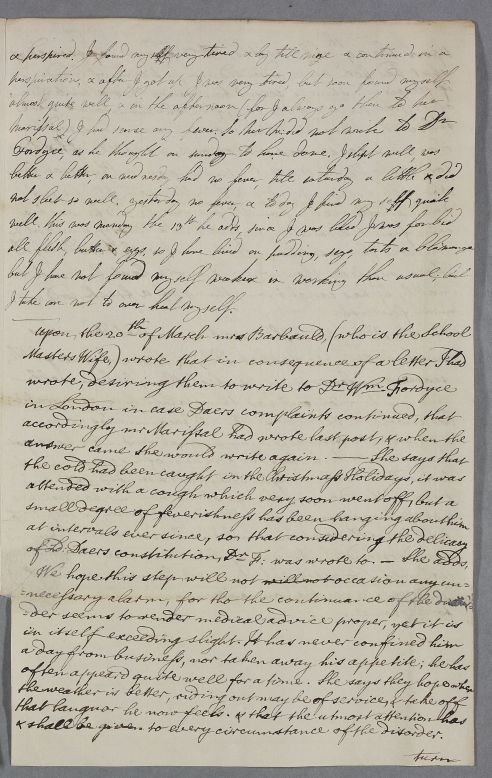 & perspired, I found myself very tired & lay till nine & continued in a
perspiration, & after I got up I was very tired, but soon found myself
almost quite well, & in the afternoon (for I always go then to mr
Marishal) I had scarse any fever. So he did not write to Dr
Fordyce, as he thought on sunday to have done. I slept well, was
better & better, on wednesday had no fever till saturday a little & did
not sleep so well. yesterday no fever & to day I find my self quite
well. this was monday the 19th he adds, since I was bled I was forbid
all flesh, butter & eggs, so I have lived on pudding, sego, tarts &
but I have not found myself weaker in working than usual, but
I take care not to over heat myself.
Upon the 20th of March mrs Barbauld, (who is the School
Masters Wife,) wrote that in consequence of a letter I had
wrote, desiring them to write to Dr Wm. Fordyce
in London in case Daers complaints continued, that
accordingly mr Marishal had wrote last post, & when the
answer came she would write again. — She says that
the cold had been caught in the Christmass Holidays, it was
attended with a cough which very soon went off, but a
small degree of feverishness has been hanging about him
at intervals ever since, so that considering the delicacy
of Ld: Daers constitution, Dr F: was wrote to. — She adds,
We hope this step will not will not occasion any un-
=necessary alarm, for tho the continuance of the disor=
=der seems to render medical advice proper, yet it is
in itself exceeding slight. It has never confined him
a day from business, nor taken away his appetite; he has
often appear'd quite well for a time. She says they hope when
the weather is better, riding out may be of service, & take off
that languor he now feels. & that the utmost attention has
& shall be given to every circumstance of the disorder.
turn